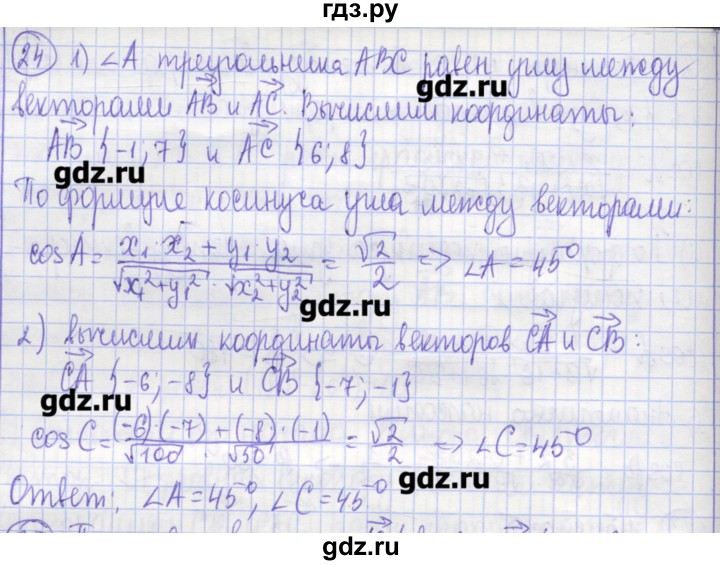 гдз.ру
24 1) ∠A треугольника ABC равен углу между
векторами AB и AC. Вычислим координаты:
gdz.ru
AB {-1; 7} и AC {6; 8}
gdz.ru
По формуле косинуса угла между векторами:
cos A = (x₁·x₂ + y₁·y₂)/(√(x₁²+y₁²) · √(x₂²+y₂²)) = √2/2 => ∠A = 45°
gdz.ru
2) Вычислим координаты векторов CA и CB:
CA {-6; -8} и CB {-7; -1}
gdz.ru
cos C = ((-6)·(-7) + (-8)·(-1))/(√100 · √50) = √2/2 => ∠C = 45°
gdz.ru
Ответ: ∠A = 45°, ∠C = 45°
gdz.ru